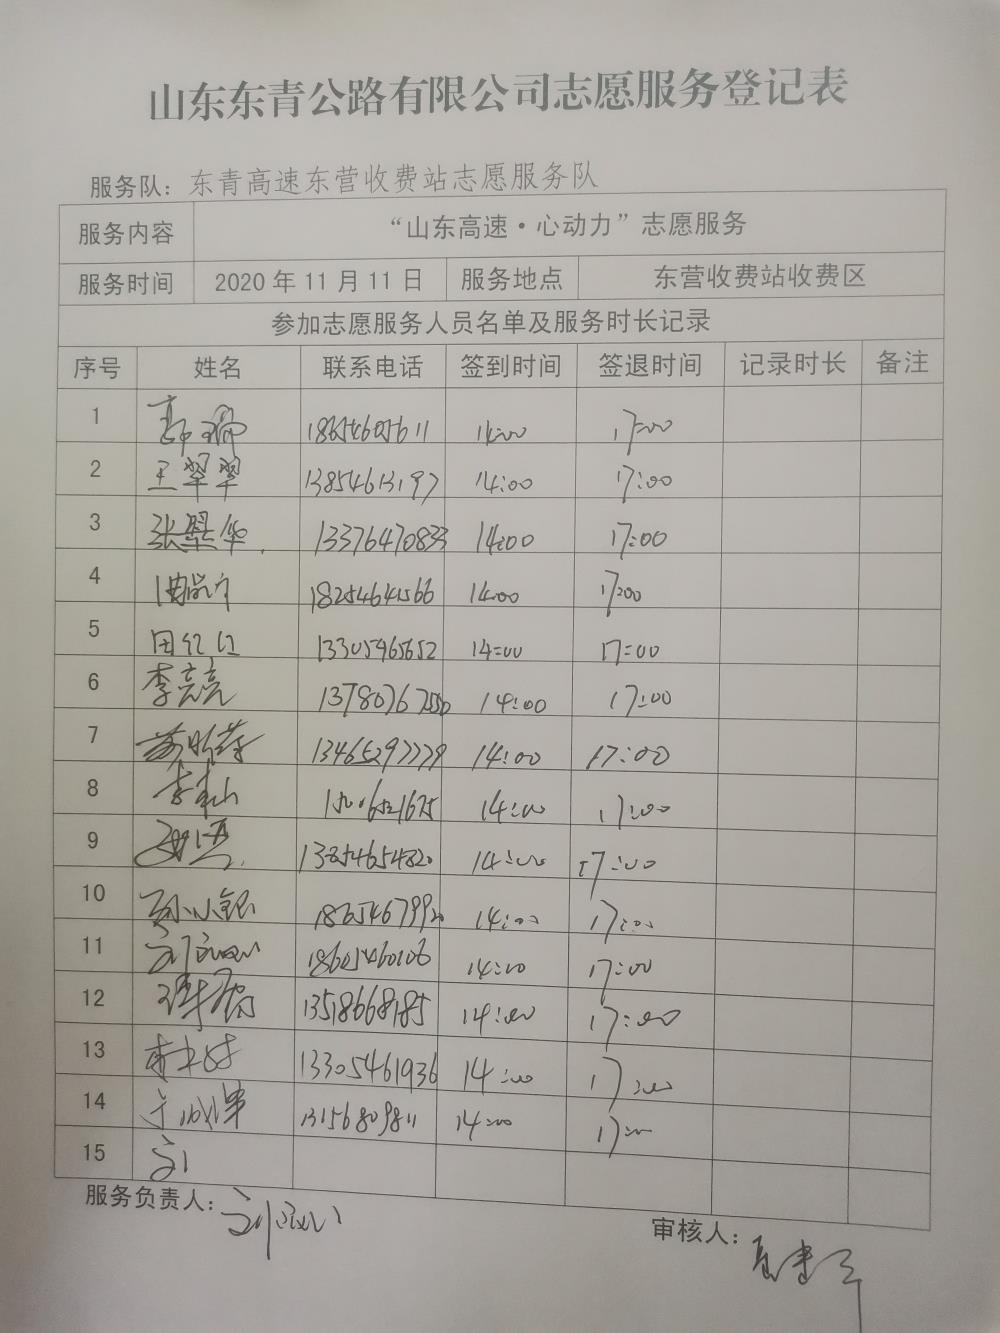 山东东青公路有限公司志愿服务登记表
服务队：东青高速东营收费站志愿服务队
服务内容 “山东高速·心动力”志愿服务
服务时间 2020 年 11 月 11 日 服务地点 东营收费站收费区
参加志愿服务人员名单及服务时长记录
序号 姓名 联系电话 签到时间 签退时间 记录时长 备注
1 14:00 17:00
2 王翠翠 13854613197 14:00 17:00
3 13376470833 14:00 17:00
4 18254641566 14:00 17:00
5 田红江 13305465652 14:00 17:00
6 李亮亮 14:00 17:00
7 13465297779 14:00 17:00
8 14:00 17:00
9 13854654820 14:00 17:00
10 孙小银 14:00 17:00
11 18605460106 14:00 17:00
12 13518668185 14:00 17:00
13 13305461936 14:00 17:00
14 13156809811 14:00 17:00
15
服务负责人：
审核人：